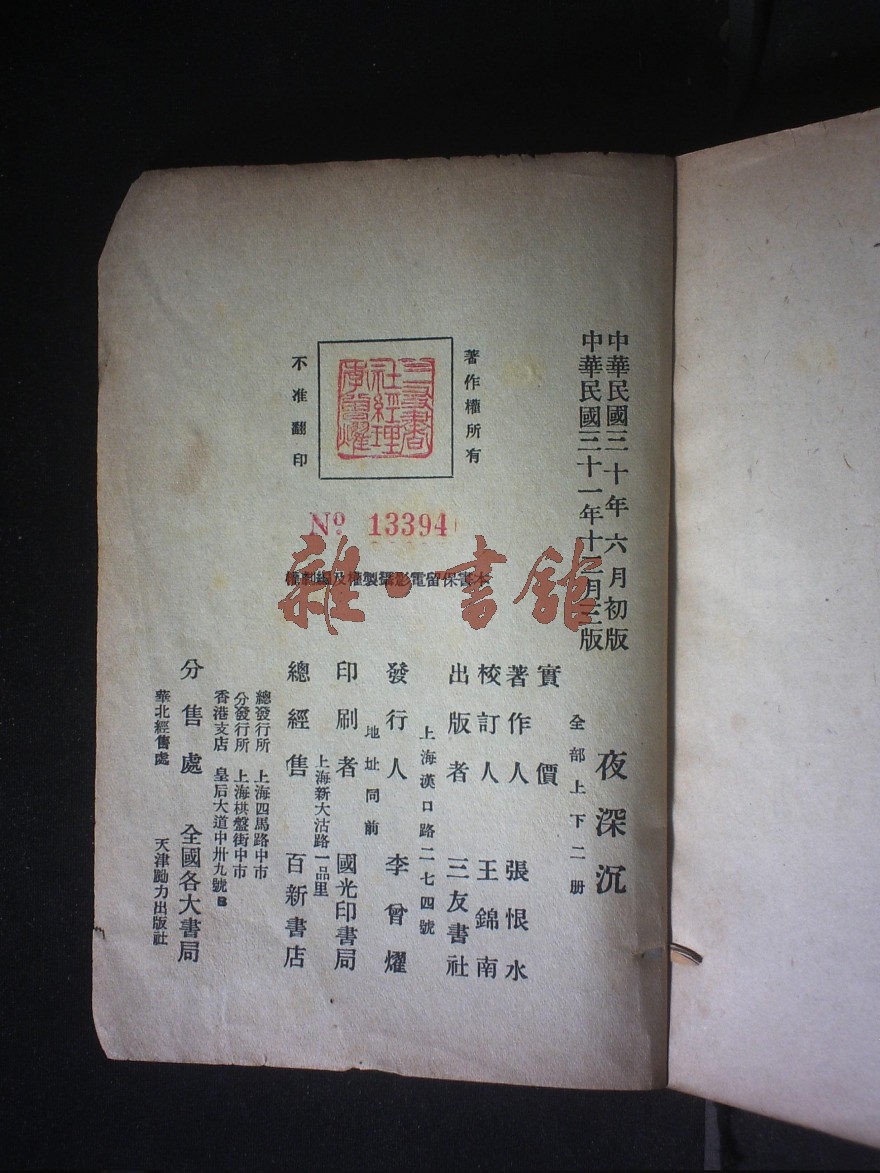 中華民國三十年六月初版
中華民國三十一年十二月三版
夜深沉
全部上下二册
實價
著作人 張恨水
校訂人 王錦南
出版者 三友書社
上海漢口路二七四號
發行人 李曾耀
地址同前
印刷者 國光印書局
上海新大沽路一品里
總經售 百新書店
總發行所 上海四馬路中市
分發行所 上海棋盤街中市
香港支店 皇后大道中卅九號B
分售處 全國各大書局
華北經售處 天津勵力出版社
著作權所有
三友書社經理李曾耀
不准翻印
No 13394
本書保留電影攝製權及編劇權
雜·書館